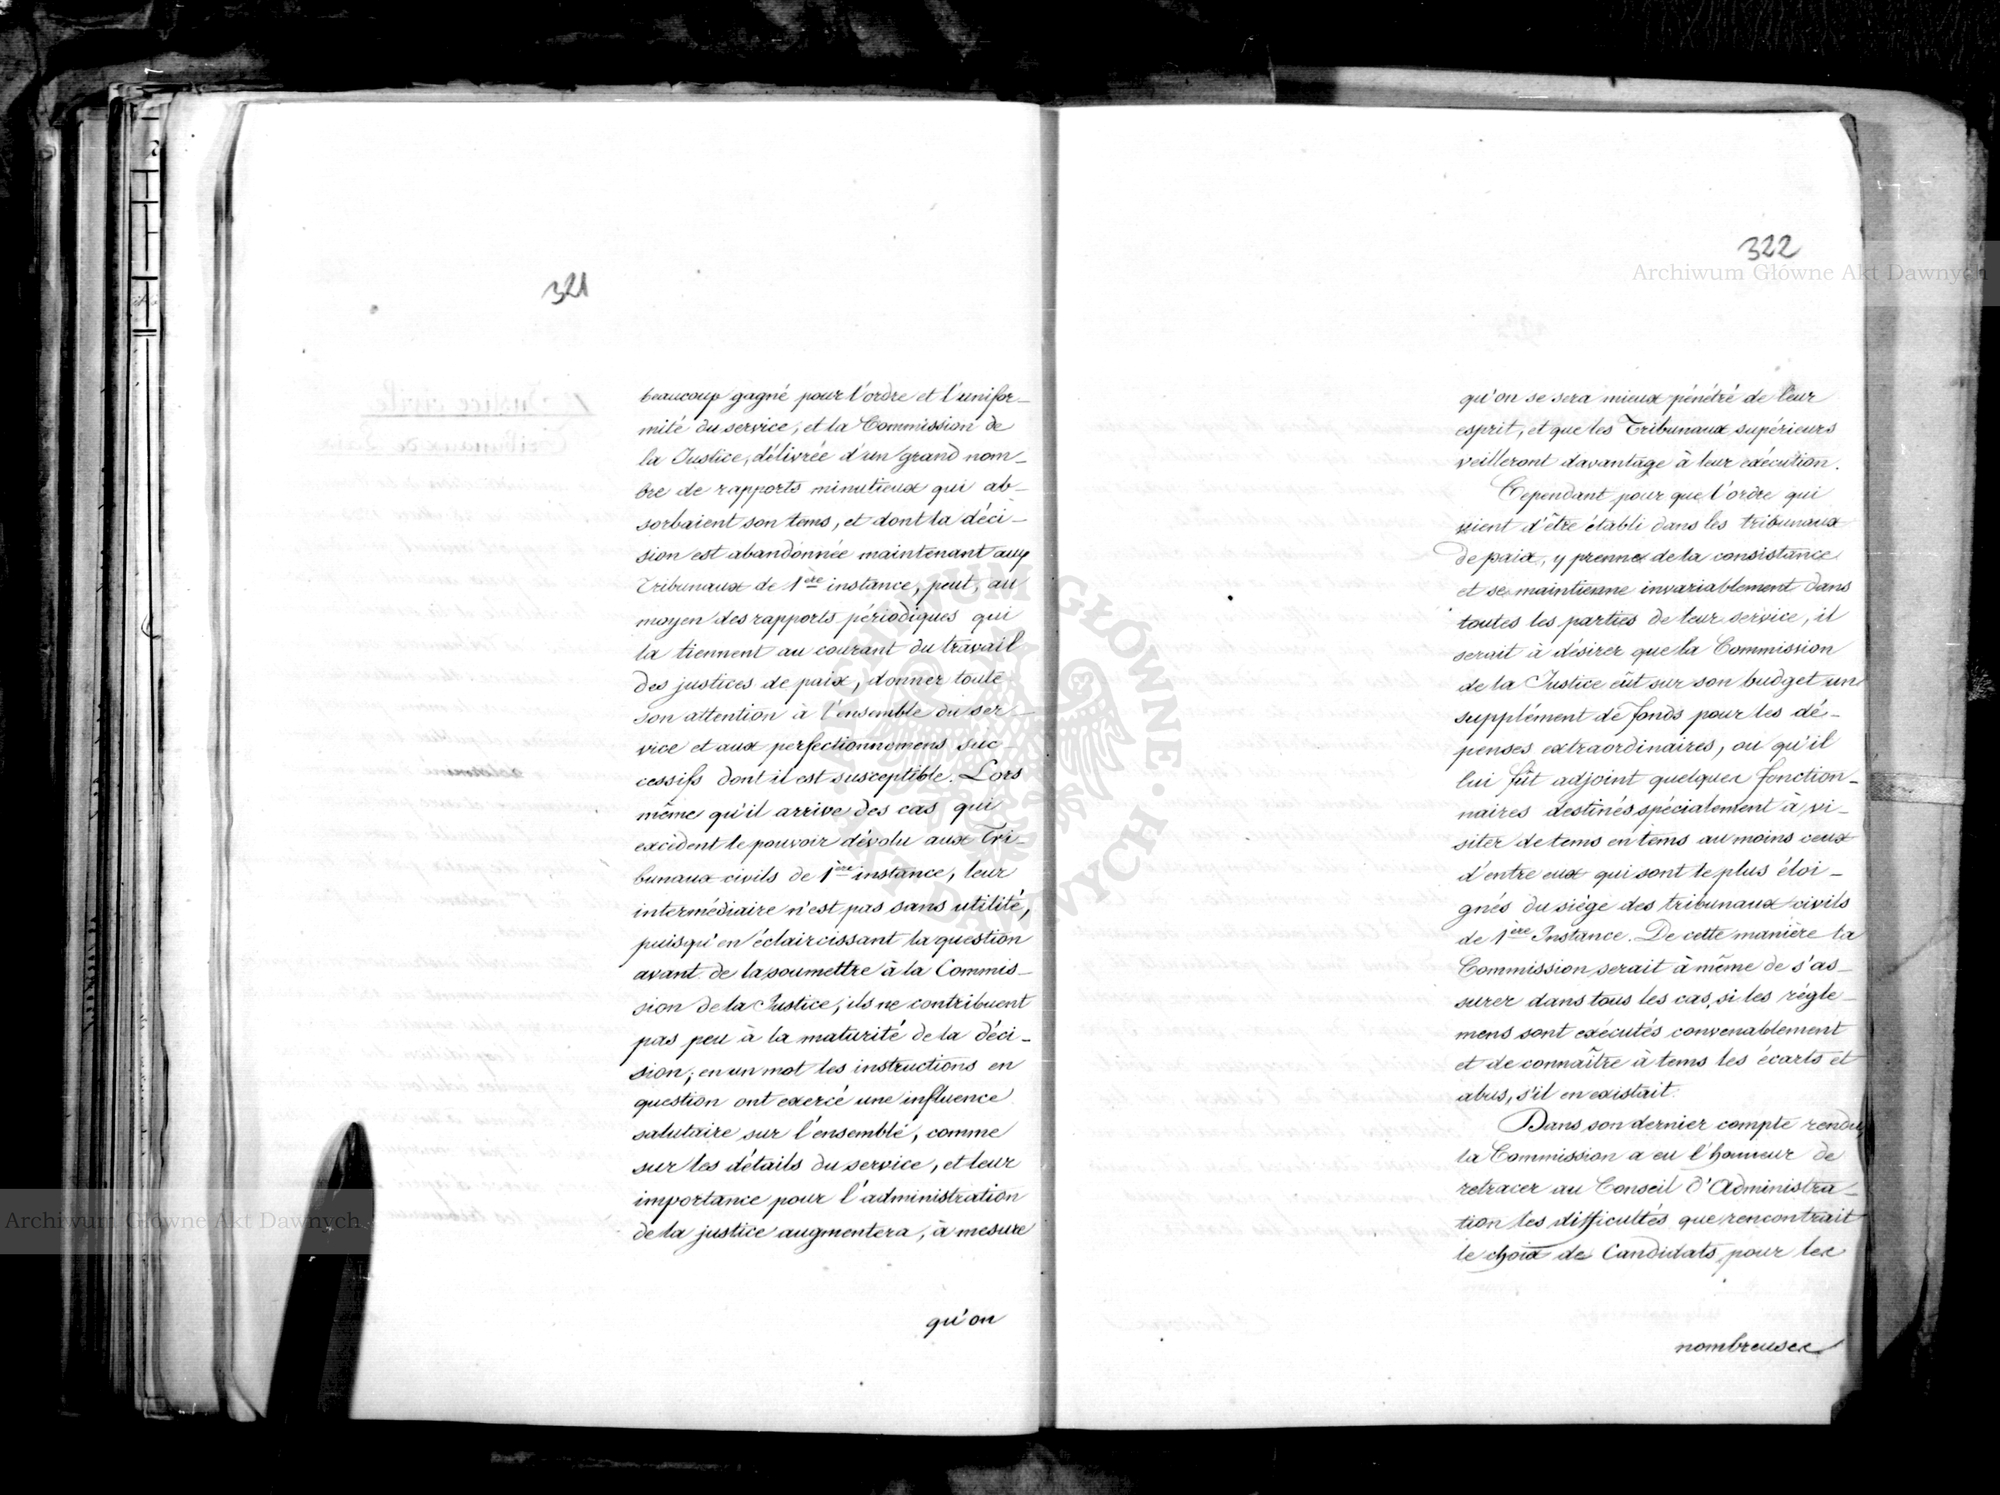 321
beaucoup gagné pour l'ordre et l'unifor-
mité du service, et la Commission de
la Justice, délivrée d'un grand nom-
bre de rapports minutieux qui ab-
sorbaient son tems, et dont la déci-
sion est abandonnée maintenant aux
Tribunaux de 1ère instance, peut, au
moyen des rapports périodiques qui
la tiennent au courant du travail
des justices de paix, donner toute
son attention à l'ensemble du ser-
vice et aux perfectionnemens suc-
cessifs dont il est susceptible. Lors
même qu'il arrive des cas qui
excèdent le pouvoir dévolu aux Tri-
bunaux civils de 1ère instance, leur
intermédiaire n'est pas sans utilité,
puisqu'en éclaircissant la question
avant de la soumettre à la Commis-
sion de la Justice, ils ne contribuent
pas peu à la maturité de la déci-
sion; en un mot les instructions en
question ont exercé une influence
salutaire sur l'ensemble, comme
sur les détails du service, et leur
importance pour l'administration
de la justice augmentera, à mesure
qu'on
322
qu'on se sera mieux pénétré de leur
esprit, et que les Tribunaux supérieurs
veilleront davantage à leur exécution.
Cependant pour que l'ordre qui
vient d'être établi dans les tribunaux
de paix, y prenne de la consistance
et se maintienne invariablement dans
toutes les parties de leur service, il
serait à désirer que la Commission
de la Justice eût sur son budget un
supplément de fonds pour les dé-
penses extraordinaires, ou qu'il
lui fût adjoint quelques fonction-
naires destinés spécialement à vi-
siter de tems en tems au moins ceux
d'entre eux qui sont le plus éloi-
gnés du siége des tribunaux civils
de 1ère Instance. De cette manière la
Commission serait à même de s'as-
surer dans tous les cas, si les régle-
mens sont exécutés convenablement
et de connaître à tems les écarts et
abus, s'il en existait.
Dans son dernier compte rendu,
la Commission a eu l'honneur de
retracer au Conseil d'Administra-
tion les difficultés que rencontrait
le choix de Candidats pour les
nombreuses
Archiwum Główne Akt Dawnych
Archiwum Główne Akt Dawnych